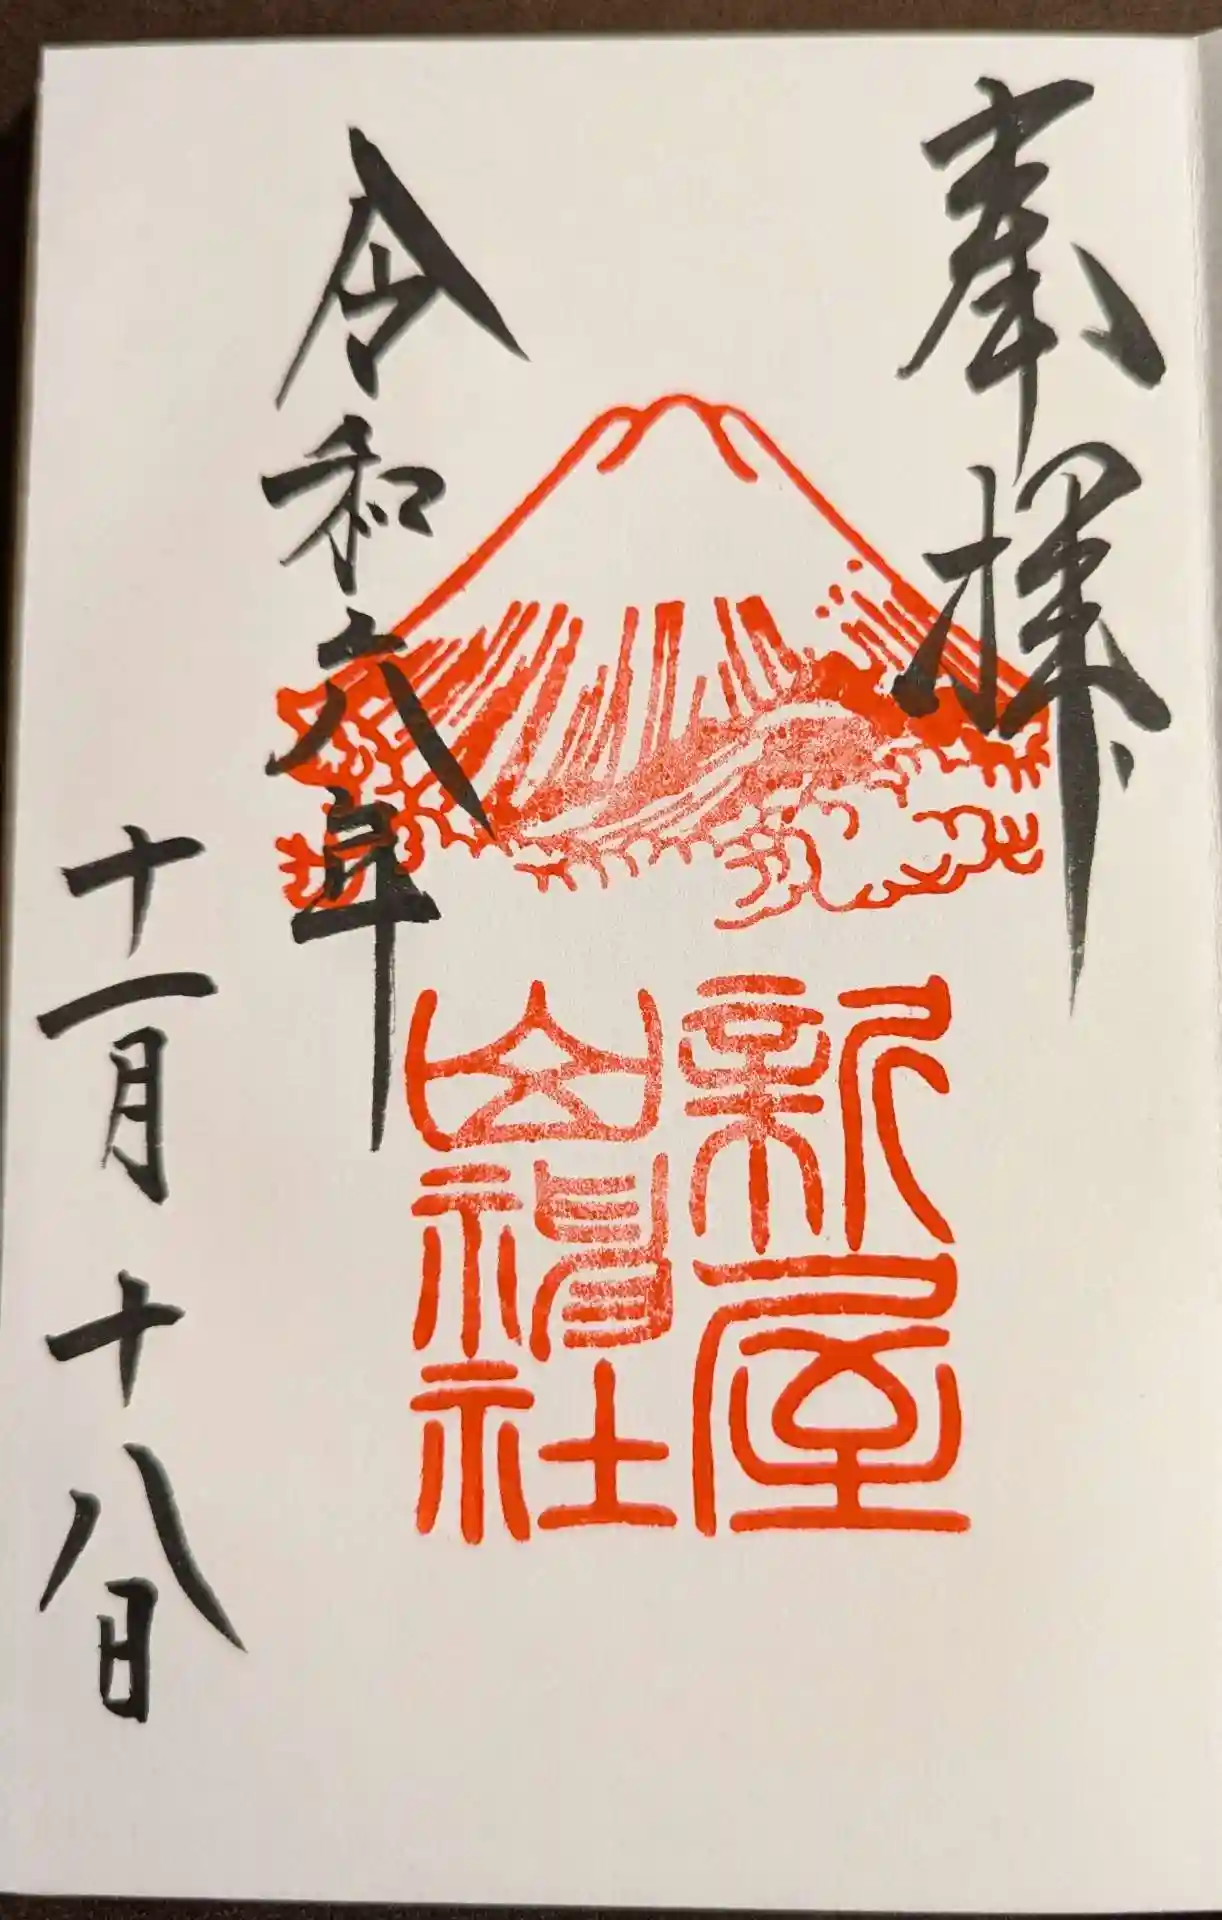 奉拝
新屋
山神社
令和六年
十一月十八日